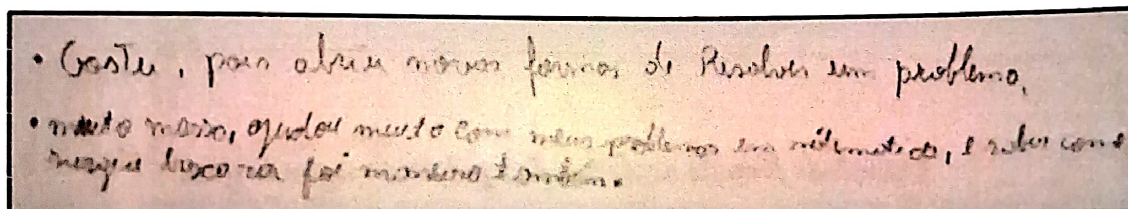 • Gostei, pois abriu novas formas de Resolver um problema.
• muito massa, ajudou muito com meus problemas em matematica, e saber como
foi maneiro também.